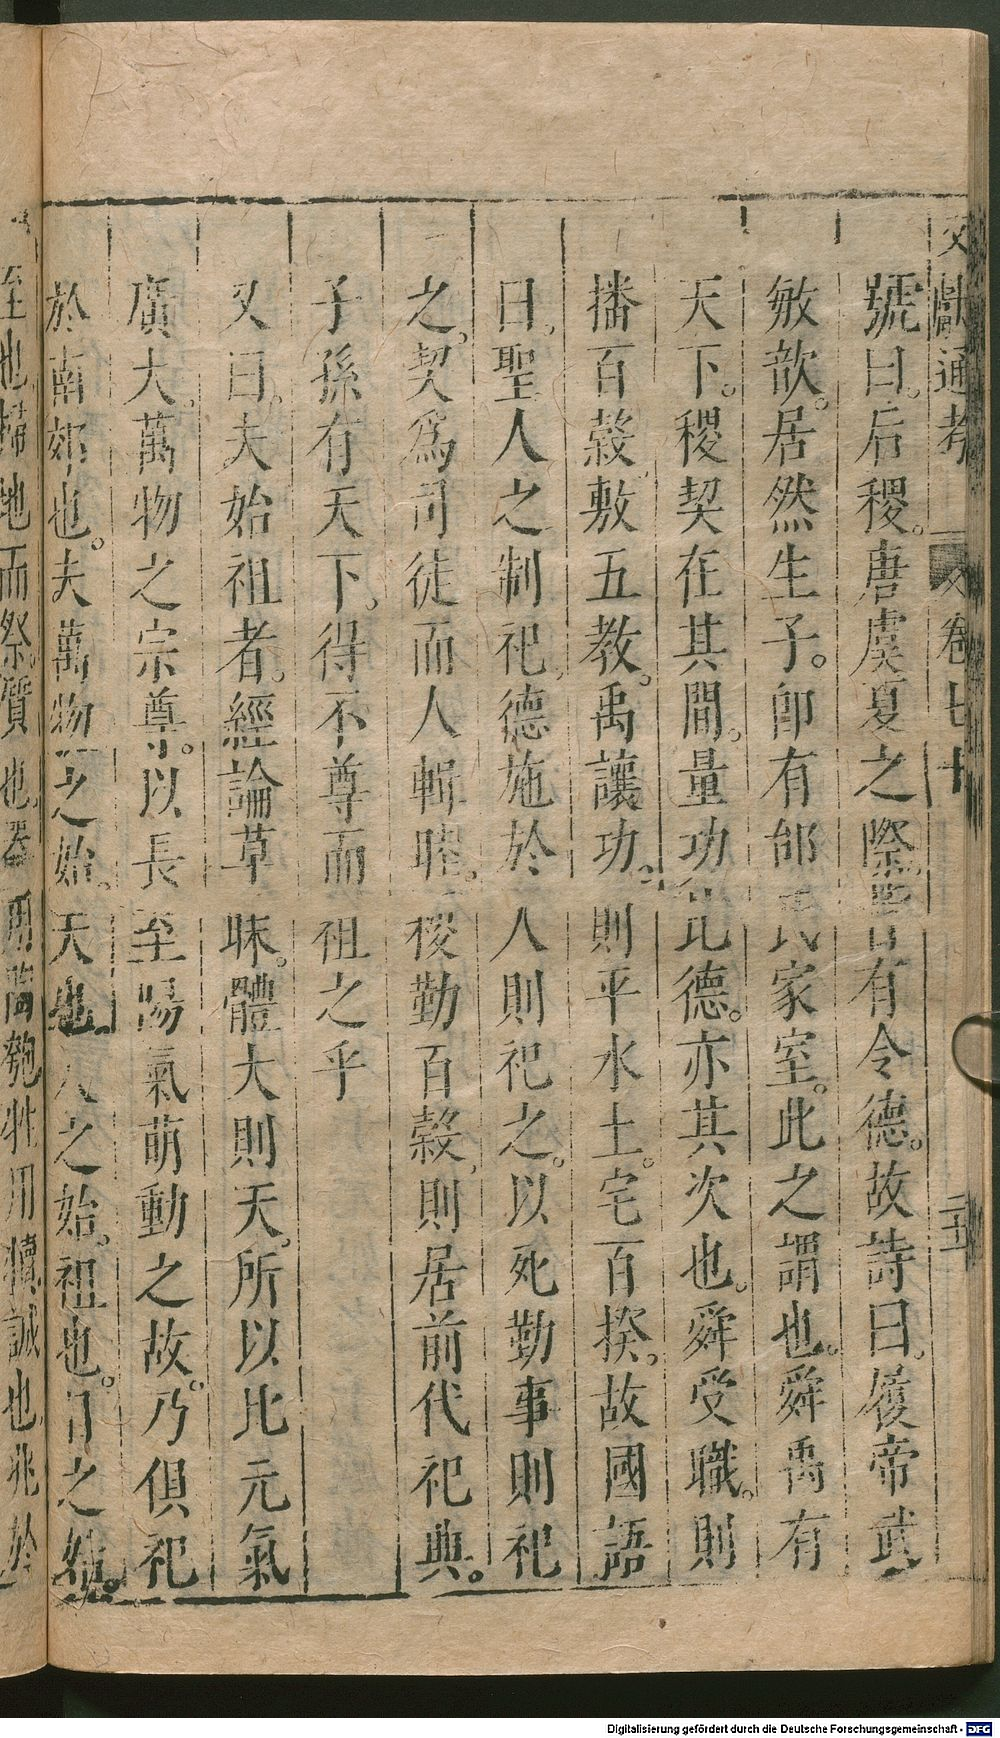 文獻通考 卷七十 二五
號曰。后稷。唐虞夏之際。皆有令德。故詩曰。履帝武
敏歆。居然生子。即有邰氏家室。此之謂也。舜禹有
天下。稷契在其間。量功比德。亦其次也。舜受職。則
播百穀。敷五教。禹讓功。則平水土。宅百揆。故國語
曰。聖人之制祀。德施於人則祀之。以死勤事則祀
之。契爲司徒而人輯睦。稷勤百穀。則居前代祀典。
子孫有天下。得不尊而祖之乎
又曰。夫始祖者。經論草昧。體大則天。所以比元氣
廣大。萬物之宗尊。以長至陽氣萌動之故。乃俱祀
於南郊也。夫萬物之始。天也。人之始。祖也。日之始。
至也。掃地而祭。質也。器用陶匏牲用犢誠也兆於
Digitalisierung gefördert durch die Deutsche Forschungsgemeinschaft - DFG